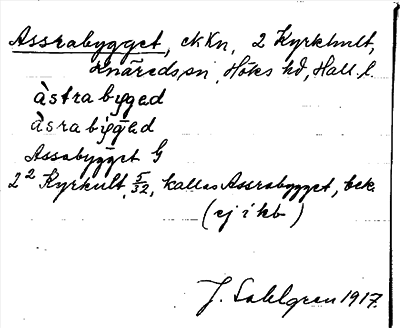 Assrabygget, ckKn, 2 Kyrkhult,
Knäreds sn, Höks hd, Hall. l.
àstrabyged
àsrabyged
Assabygget G
2² Kyrkult 5/32, kallas Assrabygget, bek.
(ej i kb)
J. Sahlgren 1917.